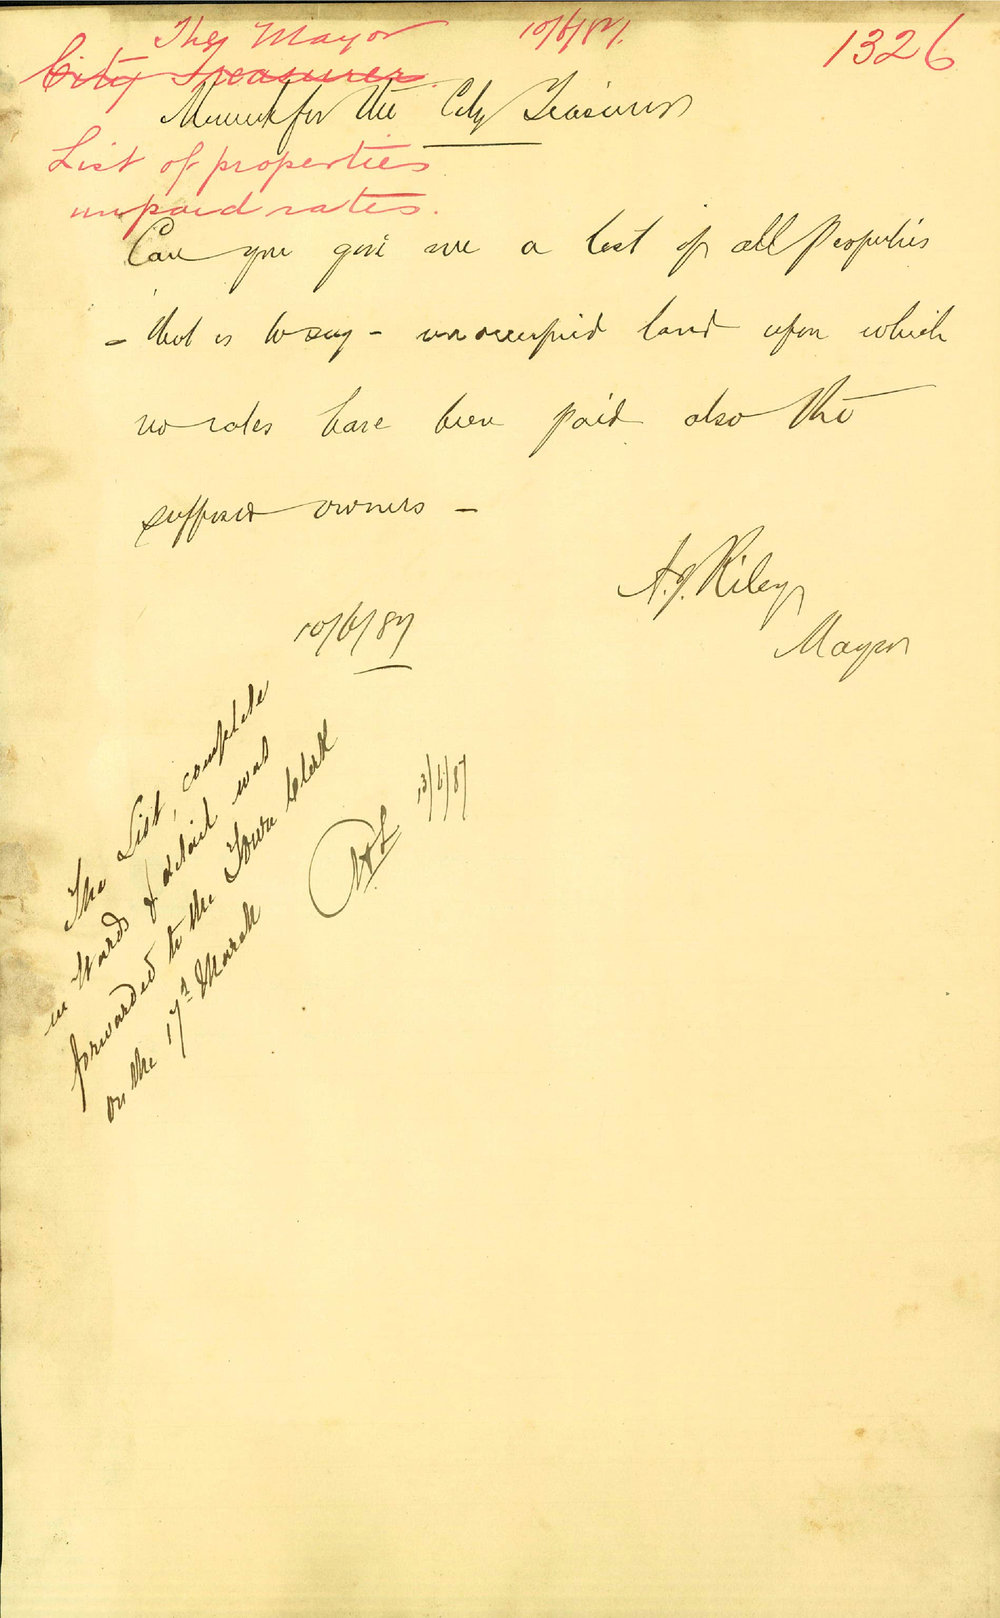 The Mayor 10/6/87. 1326
City Treasurer
for the City Treasurer
List of properties
unpaid rates.
Can you give me a list of all Properties
- that is to say - unoccupied land upon which
no rates have been paid also the
supposed owners -
A. J. Riley
Mayor
10/6/87
The List, complete
in Wards & detail was
forwarded to the Town Clerk
on the 17th March
13/6/87